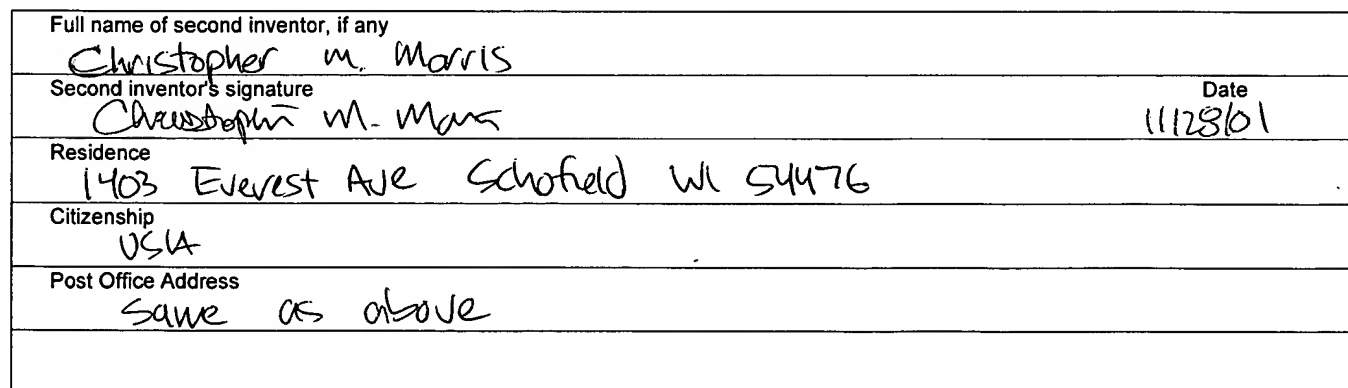 Full name of second inventor, if any
Christopher M. Morris
Second inventor's signature Date
Christopher M. Morris 11/28/01
Residence
1403 Everest Ave Schofield WI 54476
Citizenship
USA
Post Office Address
same as above